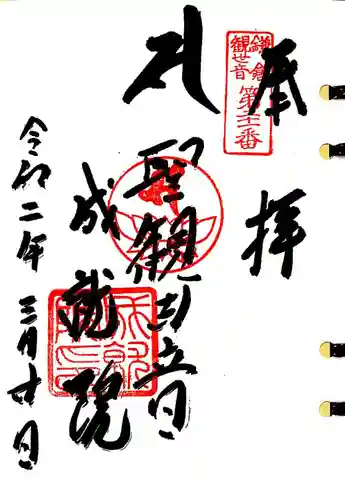 奉拝
鎌倉
観世音
第廿一番
札
聖観世音
成就院
令和二年三月廿日